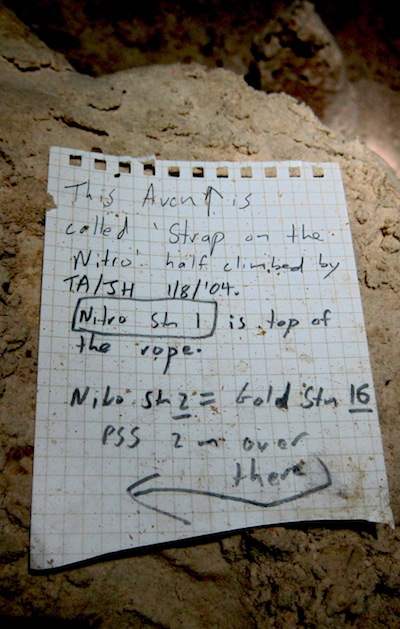 This Aven ↑ is
called 'Strap on the
Nitro' half climbed by
TA/JH 1/8/'04.
Nitro stn 1 is top of
the rope.
Nitro stn 2 = Gold Stn 16
PSS 2m over
there